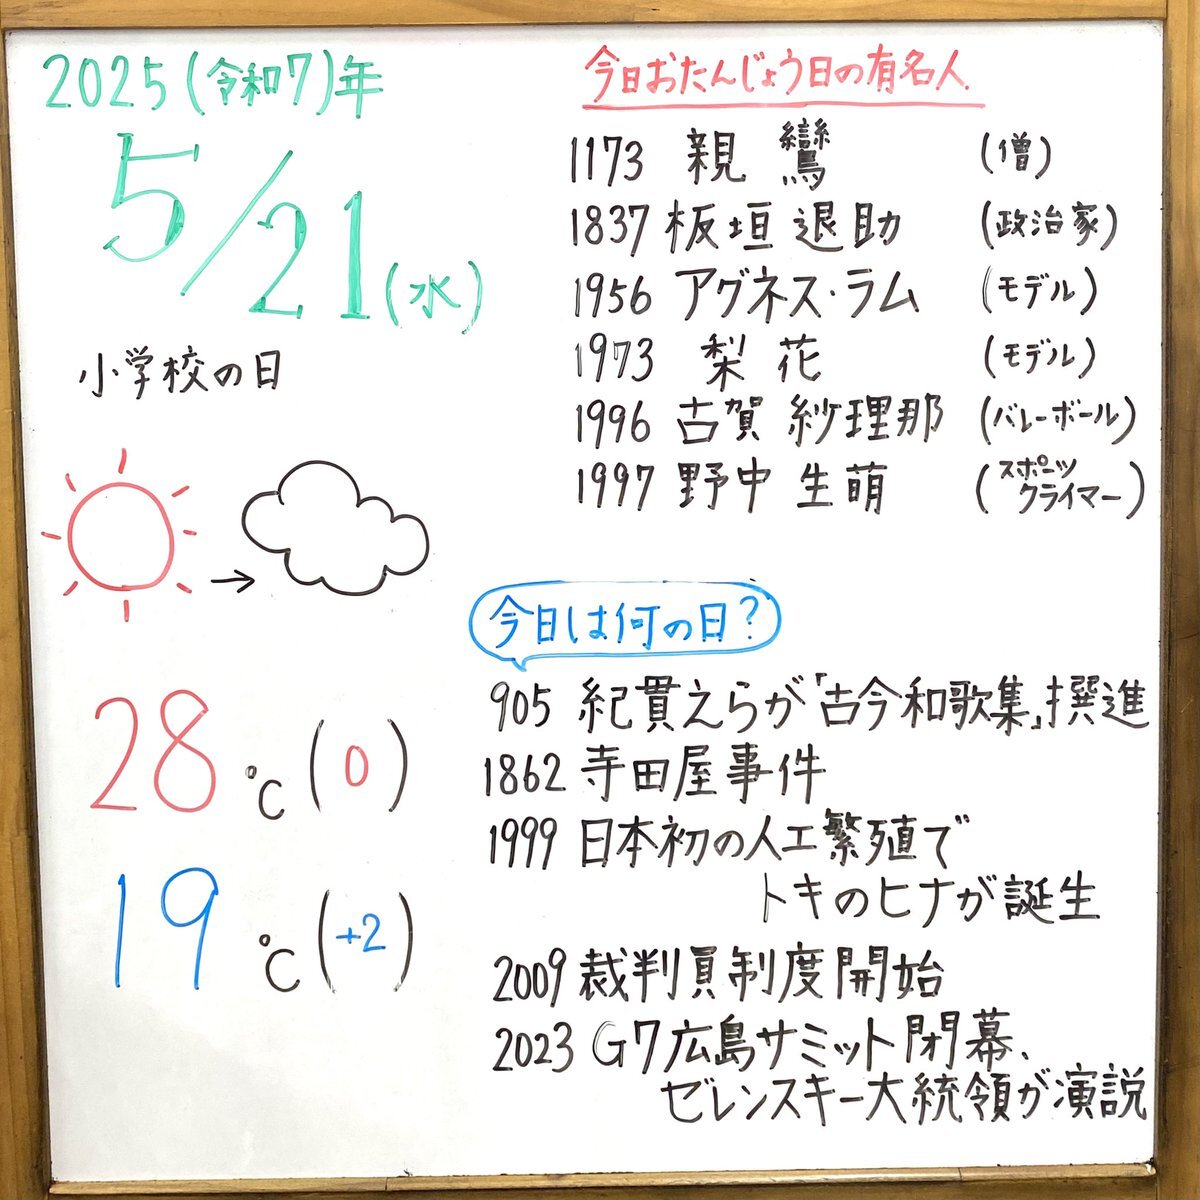 2025(令和7)年
5/21(水)
小学校の日
28℃(0)
19℃(+2)
今日おたんじょう日の有名人
1173 親鸞 (僧)
1837 板垣退助 (政治家)
1956 アグネス・ラム (モデル)
1973 梨花 (モデル)
1996 古賀紗理那 (バレーボール)
1997 野中生萌 (スポーツクライマー)
今日は何の日?
905 紀貫えらが「古今和歌集」撰進
1862 寺田屋事件
1999 日本初の人工繁殖で
トキのヒナが誕生
2009 裁判員制度開始
2023 G7広島サミット閉幕、
ゼレンスキー大統領が演説